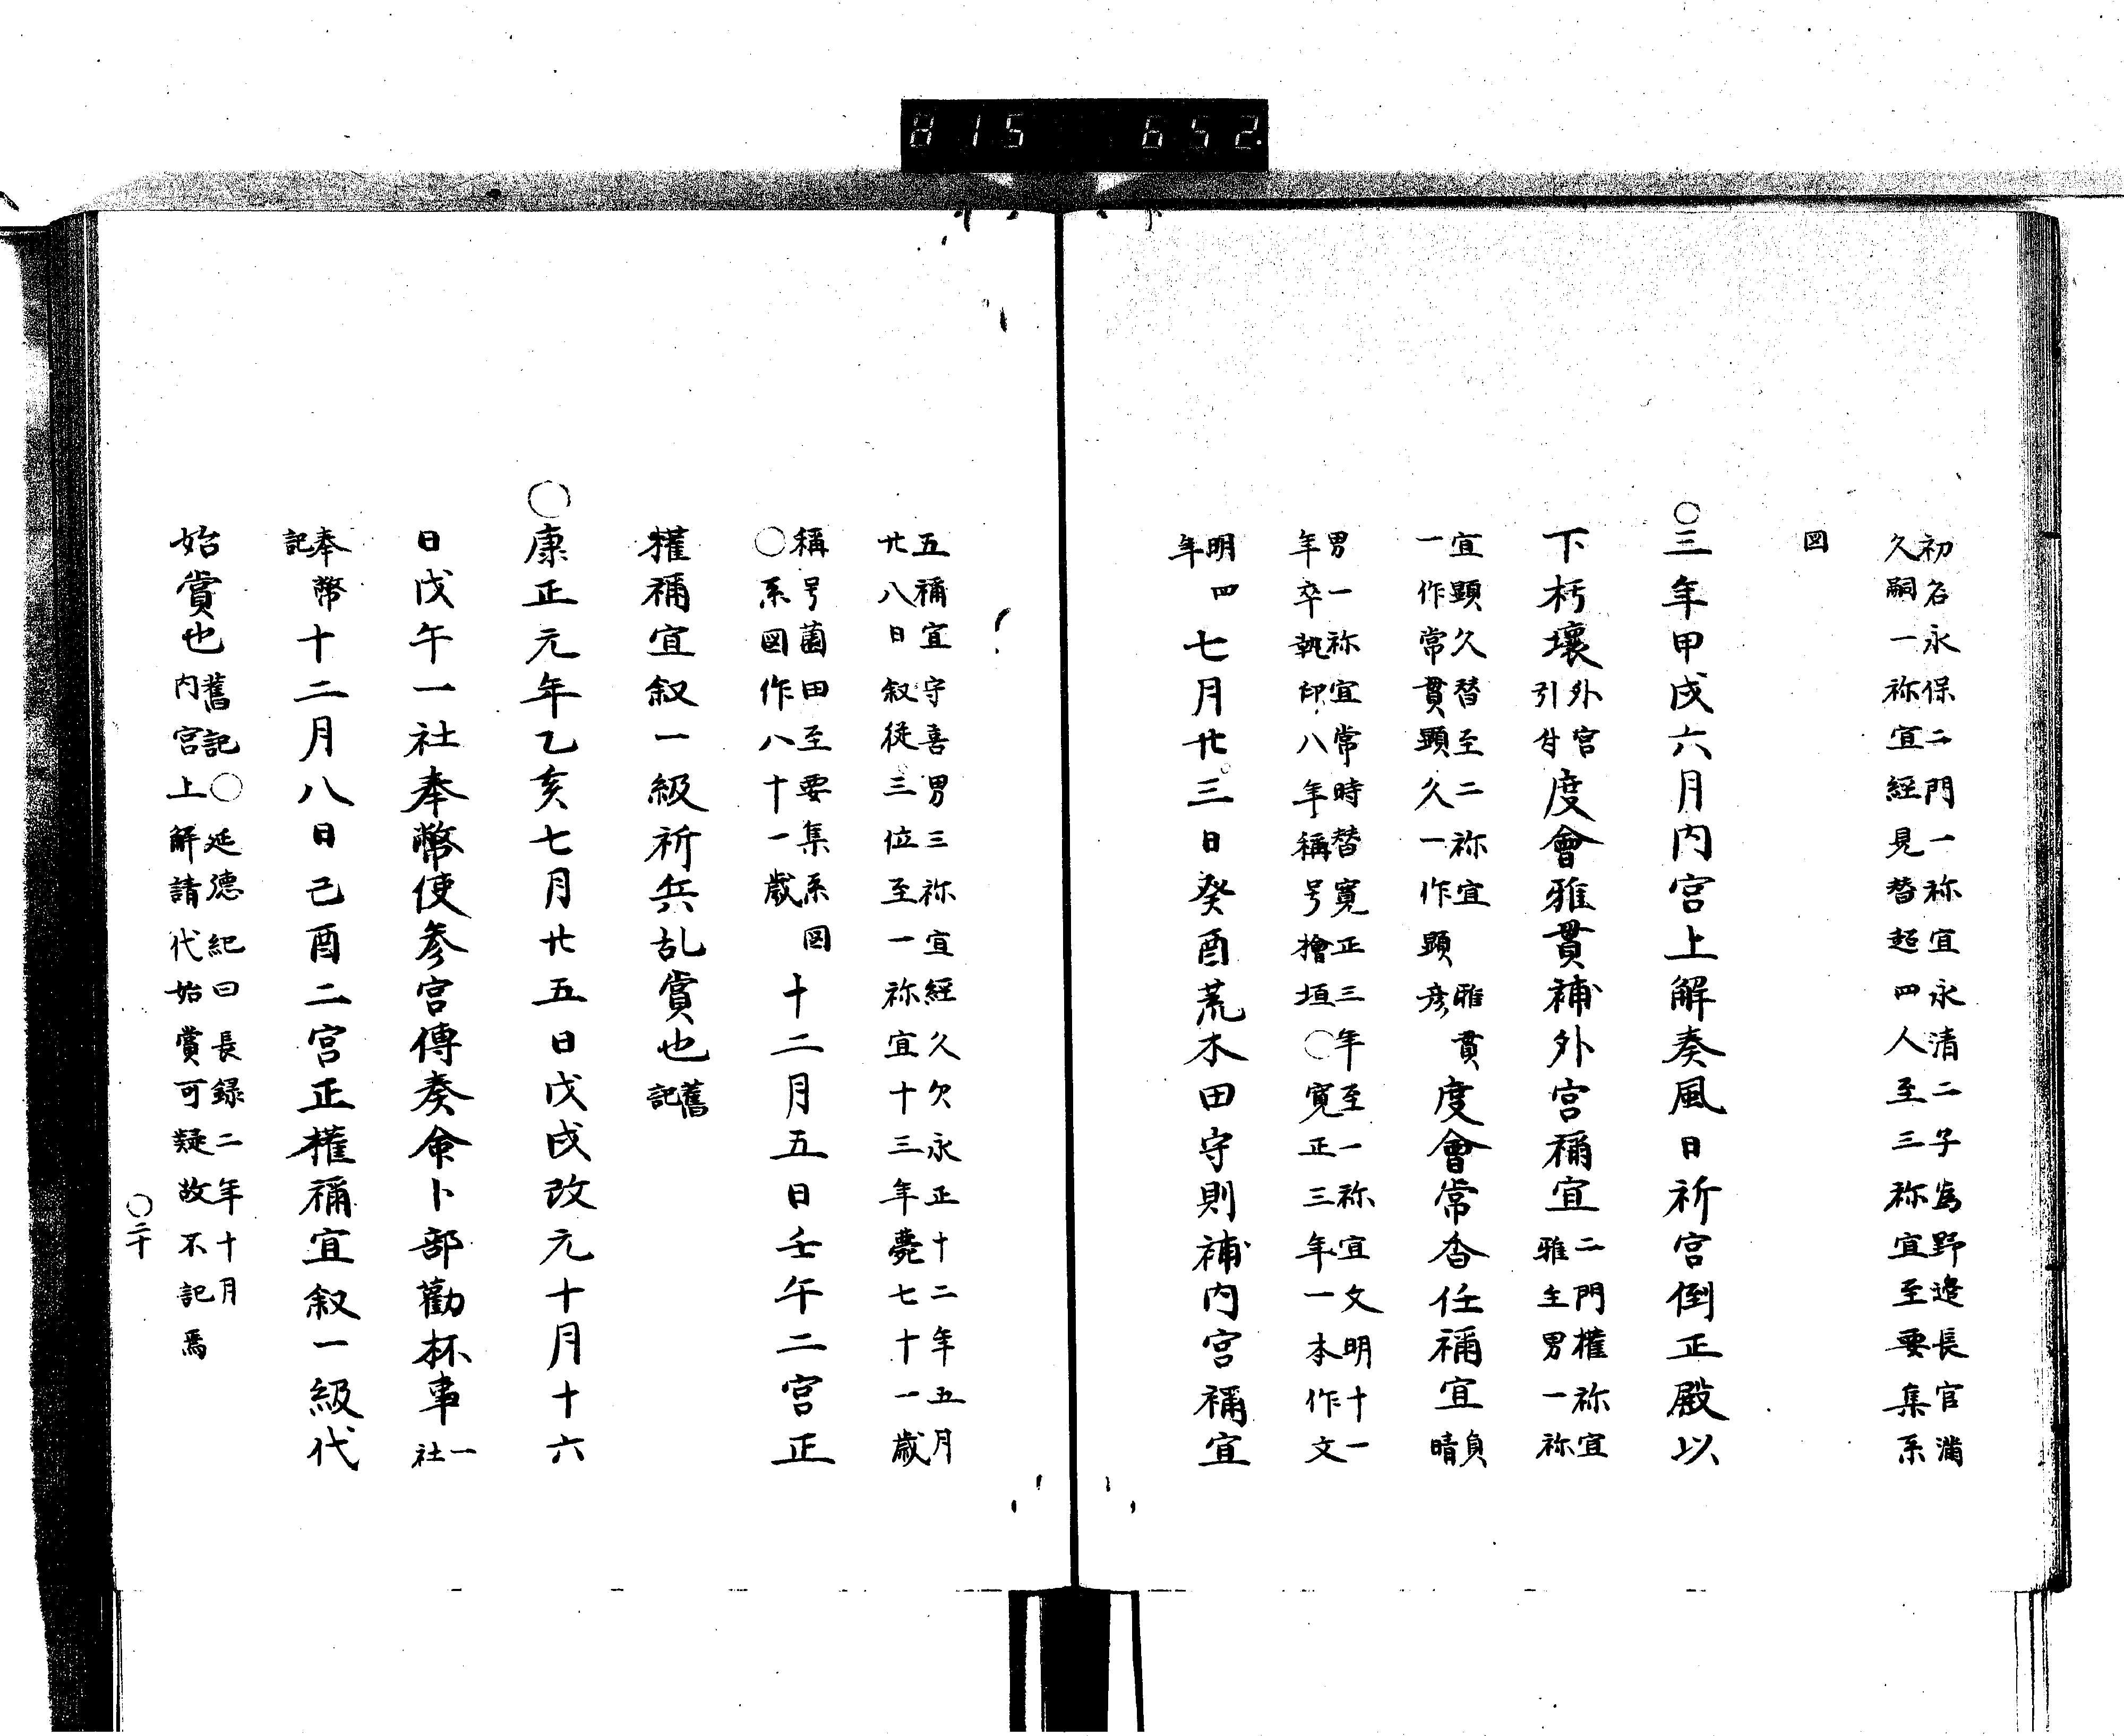 815 652.
初名永保二門一祢宜永清二子為野邉長官満
久嗣一祢宜經見替超四人至三祢宜至要集系
図
○三年甲戌六月内宮上解奏風日祈宮倒正殿以
下朽壞外宮引付度會雅貫補外宮禰宜二門權祢宜雅主男一祢
宜顕久替至二祢宜雅貫一作常貫顕久一作顕彦度會常香任禰宜負晴
男一祢宜常時替寛正三年至一祢宜文明十一
年卒執印八年稱号檜垣○寛正三年一本作文
明四年七月廿三日癸酉荒木田守則補内宮禰宜
五禰宜守喜男三祢宜經久欠永正十二年五月
廿八日叙従三位至一祢宜十三年薨七十一歳
稱号薗田至要集系図○系図作八十一歳十二月五日壬午二宮正
權禰宜叙一級祈兵乱賞也舊記
○康正元年乙亥七月廿五日戊戌改元十月十六
日戊午一社奉幣使参宮傳奏命卜部勸杯事一社
奉幣記十二月八日己酉二宮正權禰宜叙一級代
始賞也舊記○延德紀曰長録二年十月内宮上解請代始賞可疑故不記焉
○二十